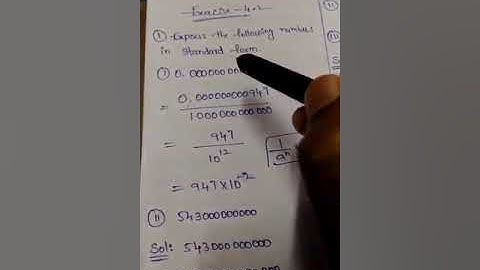 Exercise - 4.2
① Express the following numbers
in standard form.
i) 0.000000000
0.000000000947
1000000000000
947
10¹² 1/aⁿ
= 947×10⁻¹²
ii 543000000000
Sol: 543000000000